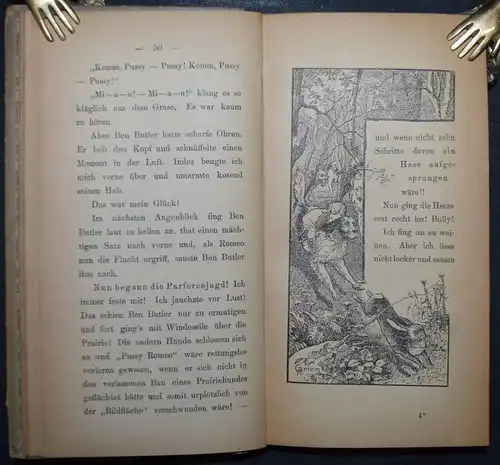 — 50 —
„Komm, Pussy — Pussy! Komm, Pussy
— Pussy!“
„Mi—a—u!— Mi—a—u!“ klang es so
kläglich aus dem Grase. Es war kaum
zu hören.
Aber Ben Butler hatte scharfe Ohren.
Er hob den Kopf und schnüffelte einen
Moment in der Luft. Indes beugte ich
mich vorne über und umarmte kosend
seinen Hals.
Das war mein Glück!
Im nächsten Augenblick fing Ben
Butler laut zu bellen an, that einen mäch-
tigen Satz nach vorne und, als Romeo
nun die Flucht ergriff, sauste Ben Butler
ihm nach.
Nun begann die Parforcejagd! Ich
immer feste mit! Ich jauchzte vor Lust!
Das schien Ben Butler nur zu ermutigen
und fort ging's mit Windeseile über die
Prairie! Die andern Hunde schlossen sich
an und „Pussy Romeo“ wäre rettungslos
verloren gewesen, wenn er sich nicht in
den verlassenen Bau eines Prairiehundes
geflüchtet hätte und somit urplötzlich von
der „Bildfläche“ verschwunden wäre! —
und wenn nicht zehn
Schritte davon ein
Hase aufge-
sprungen
wäre!!
Nun ging die Hetze
erst recht los! Bully!
Ich fing an zu wei-
nen. Aber ich liess
nicht locker und sauste
4*